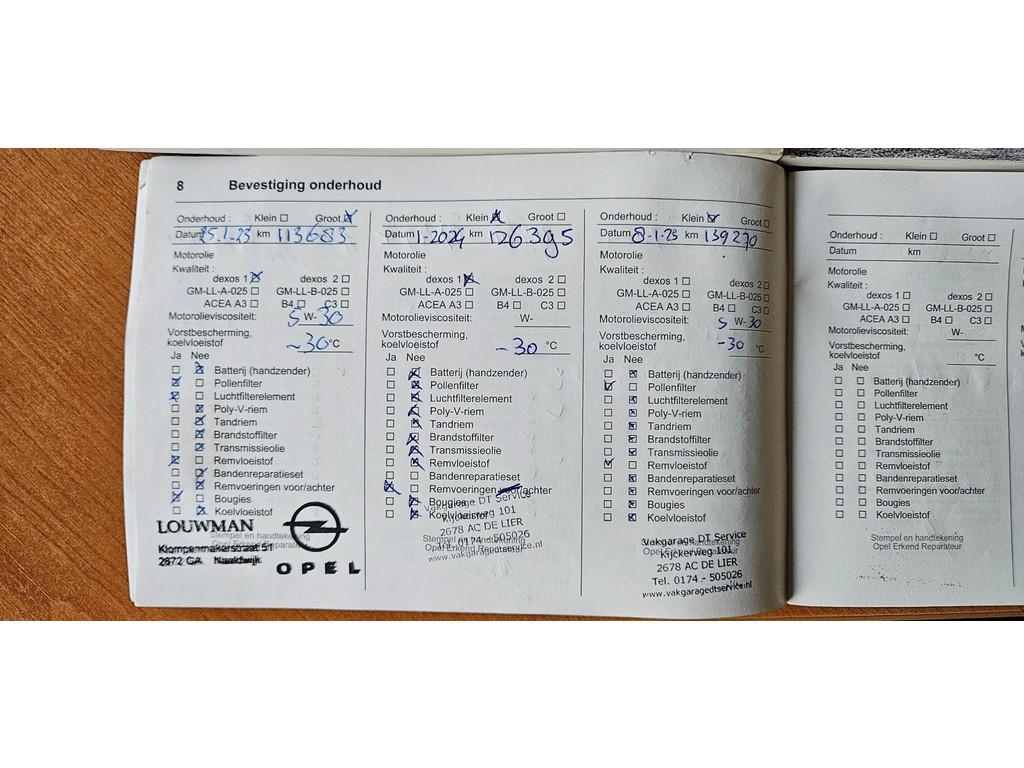 8 Bevestiging onderhoud
Onderhoud : Klein Groot
Datum 25.1-23 km 113683
Motorolie
Kwaliteit :
dexos 1 dexos 2
GM-LL-A-025 GM-LL-B-025
ACEA A3 B4 C3
Motorolieviscositeit: 5 W-30
Vorstbescherming,
koelvloeistof -30 °C
Ja Nee
Batterij (handzender)
Pollenfilter
Luchtfilterelement
Poly-V-riem
Tandriem
Brandstoffilter
Transmissieolie
Remvloeistof
Bandenreparatieset
Remvoeringen voor/achter
Bougies
Koelvloeistof
Stempel en handtekening
Opel Erkend Reparateur
LOUWMAN
Klompenmakerstraat 51
2672 GA Naaldwijk
OPEL
Onderhoud : Klein Groot
Datum 1-2024 km 126395
Motorolie
Kwaliteit :
dexos 1 dexos 2
GM-LL-A-025 GM-LL-B-025
ACEA A3 B4 C3
Motorolieviscositeit: W-
Vorstbescherming,
koelvloeistof -30 °C
Ja Nee
Batterij (handzender)
Pollenfilter
Luchtfilterelement
Poly-V-riem
Tandriem
Brandstoffilter
Transmissieolie
Remvloeistof
Bandenreparatieset
Remvoeringen voor/achter
Bougies
Koelvloeistof
Stempel en handtekening
Opel Erkend Reparateur
Vakgarage DT Service
Kijckerweg 101
2678 AC DE LIER
Tel. 0174 - 505026
www.vakgaragedtservice.nl
Onderhoud : Klein Groot
Datum 8-1-25 km 139270
Motorolie
Kwaliteit :
dexos 1 dexos 2
GM-LL-A-025 GM-LL-B-025
ACEA A3 B4 C3
Motorolieviscositeit: 5 W-30
Vorstbescherming,
koelvloeistof -30 °C
Ja Nee
Batterij (handzender)
Pollenfilter
Luchtfilterelement
Poly-V-riem
Tandriem
Brandstoffilter
Transmissieolie
Remvloeistof
Bandenreparatieset
Remvoeringen voor/achter
Bougies
Koelvloeistof
Stempel en handtekening
Opel Erkend Reparateur
Vakgarage DT Service
Kijckerweg 101
2678 AC DE LIER
Tel. 0174 - 505026
www.vakgaragedtservice.nl
Onderhoud : Klein Groot
Datum km
Motorolie
Kwaliteit :
dexos 1 dexos 2
GM-LL-A-025 GM-LL-B-025
ACEA A3 B4 C3
Motorolieviscositeit: W-
Vorstbescherming,
koelvloeistof °C
Ja Nee
Batterij (handzender)
Pollenfilter
Luchtfilterelement
Poly-V-riem
Tandriem
Brandstoffilter
Transmissieolie
Remvloeistof
Bandenreparatieset
Remvoeringen voor/achter
Bougies
Koelvloeistof
Stempel en handtekening
Opel Erkend Reparateur